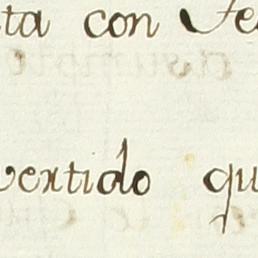 ta con Fe
vertido qu